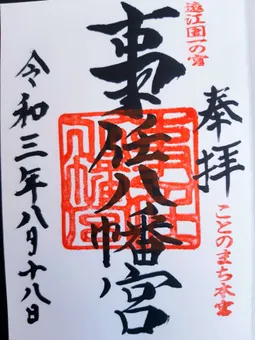 奉拝
ことのまち本宮
遠江国一の宮
事任八幡宮
令和三年八月十八日